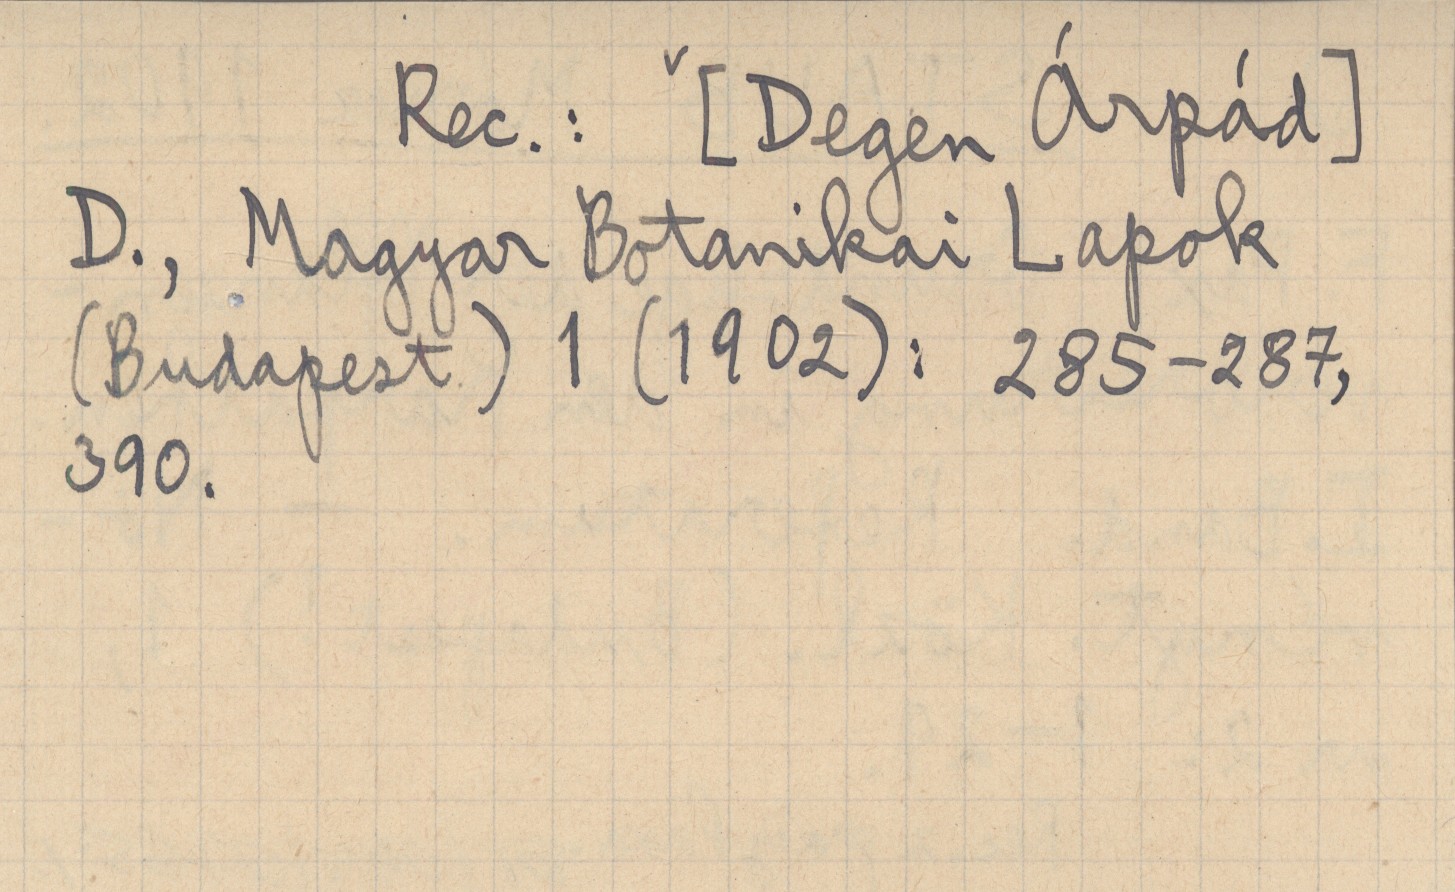 Rec.: [Degen Árpád]
D., Magyar Botanikai Lapok
(Budapest) 1 (1902): 285-287,
390.